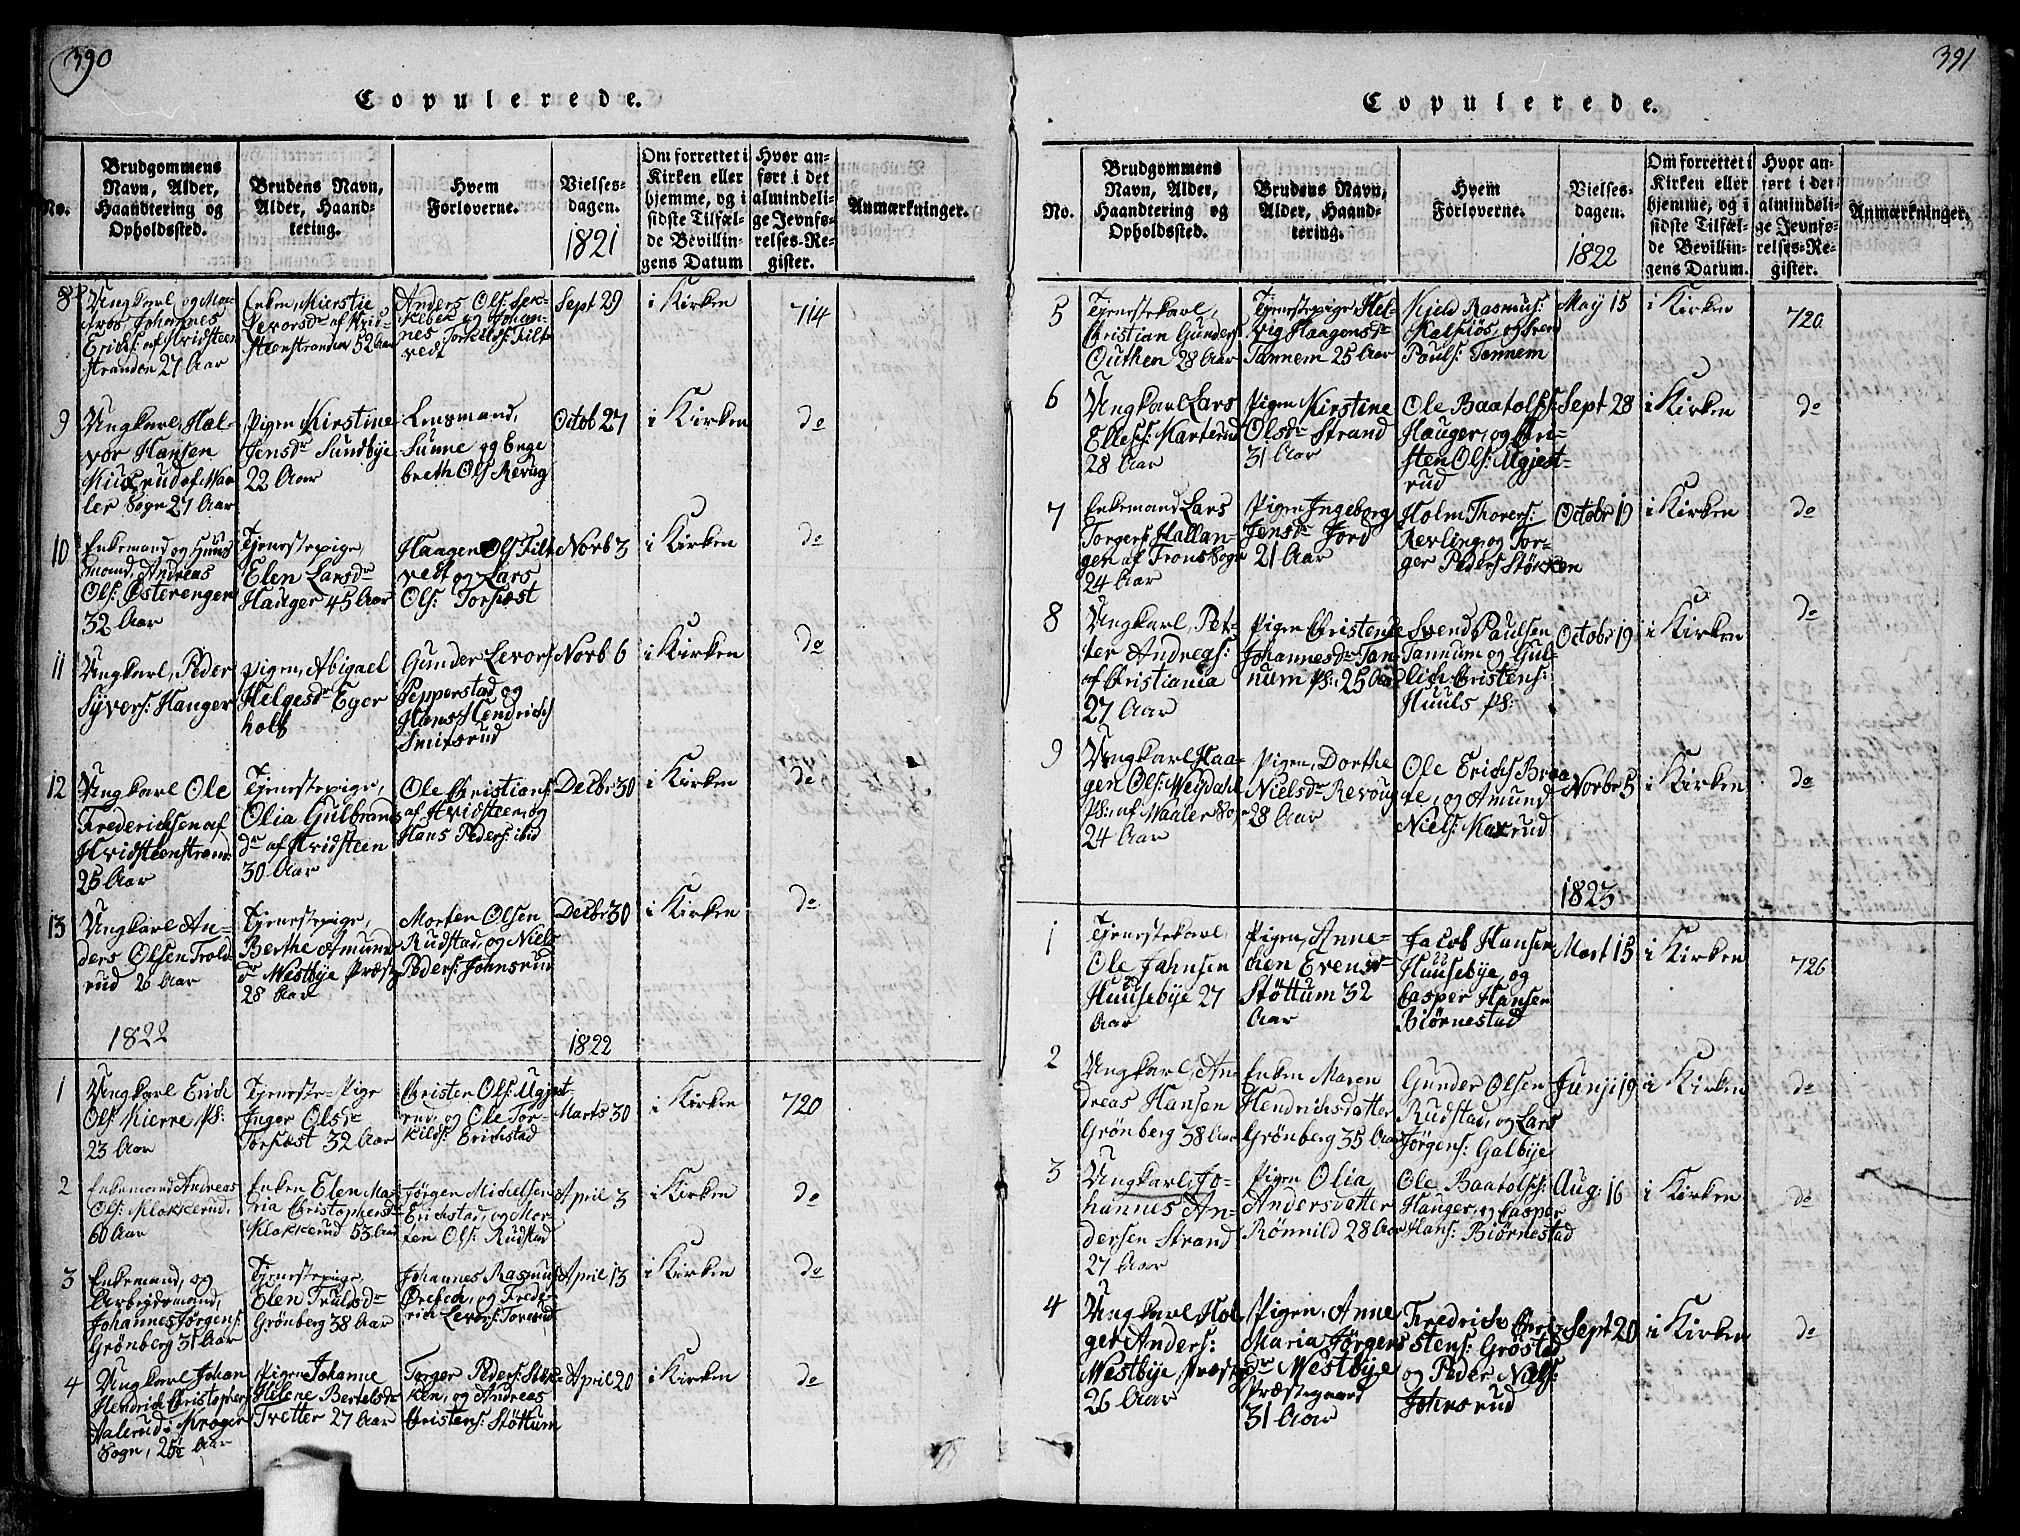 390
Copulerede.
No.
Brudgommens
Navn, Alder,
Haandtering og
Opholdssted.
Brudens Navn,
Alder, Haand-
tering.
Hvem
Forloverne.
Vielses-
dagen.
1821
Om forrettet i
Kirken eller
hjemme, og i
sidste Tilfæl-
de Bevillin-
gens Datum
Hvor an-
ført i det
almindeli-
ge Jevnfø-
relses-Re-
gister.
Anmærkninger.
8
Ungkarl og Ma-
tros Johannes
Erichs: af Hvidsteen
stranden 27 Aar
Enken, Kierstie
Levorsdr af Hvid-
steenstranden 52 Aar
Anders Ols:
og Johan-
nes Torkilds: Filt-
vedt
Sept 29
i Kirken
714
9
Ungkarl, Hal-
vor Hansen
af Waa-
ler Sogn 27 Aar
Pigen Kirstine
Jensdr Sundbye
22 Aar
Lensmand,
Sunne og Enge
breth Ols Revoug
Octob 27
i Kirken
do
10
Enkemand og Huus
mand, Andreas
Ols: Østerengen
32 Aar
Tjenestepige,
Elen Larsdr
Hauger 45 Aar
Haagen Ols Filt
vedt og Lars
Ols: Torkæst
Norb 3
i Kirken
do
11
Ungkarl, Peder
Syvers: Hauger
pigen, Abigael
Helgesdr Eger
holt
Gunder Levors
Pepperstad og
Hans Hendrichs
Smitsrud
Norb 6
i Kirken
do
12
Ungkarl Ole
Frederichsen af
Hvidsteenstrand
25 Aar
Tjenestepige,
Olia Gulbrands
dr af Hvidsteen
30 Aar
Ole Christians:
af Hvidsteen, og
Hans Peders: ibid
Decbr 30
i Kirken
do
13
Ungkarl An-
ders Olsen Trold
rud 26 Aar
Tjenestepige,
Berthe Amund
dr Westbye Præstg
28 Aar
Morten Olsen
Rudstad, og Niels
Peders: Johnsrud
Decbr 30
i Kirken
do
1822
1822
1
Ungkarl Erich
Ols: Kierre Ps:
23 Aar
Tjeneste-Pige
Inger Olsdr
Torkæst 32 Aar
Christen Ols: Ugjest
rud, og Ole Tor-
kilds: Erichstad
Marts 30
i Kirken
720
2
Enkemand Andreas
Ols: Klokkerud,
60 Aar
Enken Elen Ma-
ria Christophersdr
Klokkerud 53 Aar
Jørgen Michelsen
Erichstad, og Mor-
ten Ols: Rudstad
April 3
i Kirken
do
3
Enkemand, og
Arbeidsmand,
Johannes Jørgens:
Grønberg 31 Aar
Tjenestepige,
Elen Trulsdr
Grønberg 38 Aar
Johannes Rasmus:
og Frede-
rich Levors:
April 13
i Kirken
do
4
Ungkarl Johan
Hendrich Christophers
Aalerud i Kroger
Sogn, 25½ Aar
Pigen Johanne
Helene Bertelsdr
Tvetter 27 Aar
Torger Peders: Støk-
ken, og Andreas
Christens: Støttum
April 20
i Kirken
do
391
Copulerede.
No.
Brudgommens
Navn, Alder,
Haandtering og
Opholdssted.
Brudens Navn,
Alder, Haand-
tering.
Hvem
Forloverne.
Vielses-
dagen.
1822
Om forrettet i
Kirken eller
hjemme, og i
sidste Tilfæl-
de Bevillin-
gens Datum.
Hvor an-
ført i det
almindeli-
ge Jevnfø-
relses-Re-
gister.
Anmærkninger.
5
Tjenestekarl,
Christian Gunders:
Outhen 28 Aar
Tjenestepige Hel-
vig Haagensdr
Tannem 25 Aar
Kield Rasmus:
Kalsiøs, og Svend
Pouls: Tannem
May 15
i Kirken
720
6
Ungkarl Lars
Elles: Marterud
28 Aar
Pigen Kirstine
Olsdr Strand
31 Aar
Ole Baatolfs:
Hauger, og Chri-
sten Ols: Ugjest-
rud
Sept 28
i Kirken
do
7
Enkemand Lars
Torgers Hallan-
gen af Frons Sogn
24 Aar
Pigen Ingeborg
Jensdr Jord
21 Aar
Holm Thorers:
Kerling, og Tor-
ger Peders Støkken
Octobr 19
i Kirken
do
8
Ungkarl, Pet-
ter Andreas:
af Christiania
27 Aar
Pigen Christense
Johannesdr Tan-
num Ps: 25 Aar
Svend Paulsen
Tannum og Gul-
lich Christens:
Huuls Ps:
Octobr 19
i Kirken
do
9
Ungkarl Haa-
gen Ols: Weydahl
Ps: af Waaler Sogn
24 Aar
Pigen, Dorthe
Nielsdr Revoug
28 Aar
Ole Erichs Braa
te, og Amund
Niels: Maxrud
Norbr 5
i Kirken
do
1823
1
Tjenestekarl,
Ole Jahnsen
Huusebye 27
Aar
Pigen, Anne-
chen Evensdr
Støttum 32
Aar
Jacob Hansen
Huusebye, og
Casper Hansen
Biørnestad
Mart 15
i Kirken
726
2
Ungkarl, An-
dreas Hansen
Grønberg 38 Aar
Enken Maren
Hendrichsdatter
Grønberg 35 Aar
Gunder Olsen
Rudstad, og Lars
Jørgens: Galbye
Junji 19
i Kirken
do
3
Ungkarl, Jo-
hannes An-
dersen Strand
27 Aar
Pigen Olia
Andersdatter
Rønnild 28 Aar
Ole Baatolfs:
Hauger, og Casper
Hans: Biørnestad
Aug: 16
i Kirken
do
4
Ungkarl Hol-
ger Anders:
Westbye Præstg
26 Aar
Pigen, Anne
Maria Jørgens
dr Westbye
Præstegaard
31 Aar
Fredrich Chri-
stens: Grøstad
og Peder Niels:
Johnsrud
Sept 20
i Kirken
do